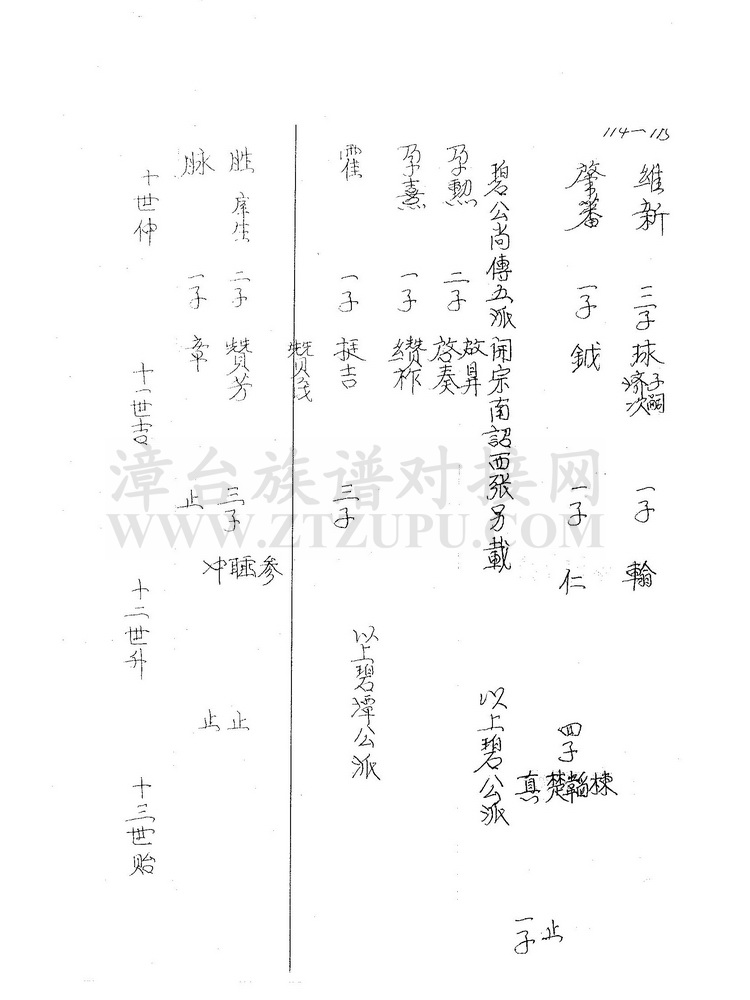 114—115
維新 三子 球 子嗣 济次 一子 翰
肇蕃 一子 鉞 一子 仁 四子 棟 韜 楚 真 止 一子
碧公尚傳五派開宗南詔西張另載
以上碧公派
孕勲 二子 啟昇 啓奏
孕熹 一子 纘祚
霍 一子 挺吉 三子
以上碧潭公派
胜 庠生 二子 贊芳 三子 参 聒 冲 止 止
脉 一子 章 止
十世仲 十一世吉 十二世升 十三世贻
漳台族谱对接网
WWW.ZTZUPU.COM